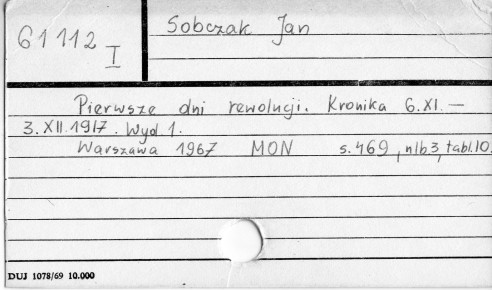 61112
I
Sobczak Jan
Pierwsze dni rewolucji. Kronika 6.XI. —
3.XII.1917. Wyd. 1.
Warszawa 1967 MON s. 469, nlb 3, tabl. 10.
DUJ 1078/69 10.000